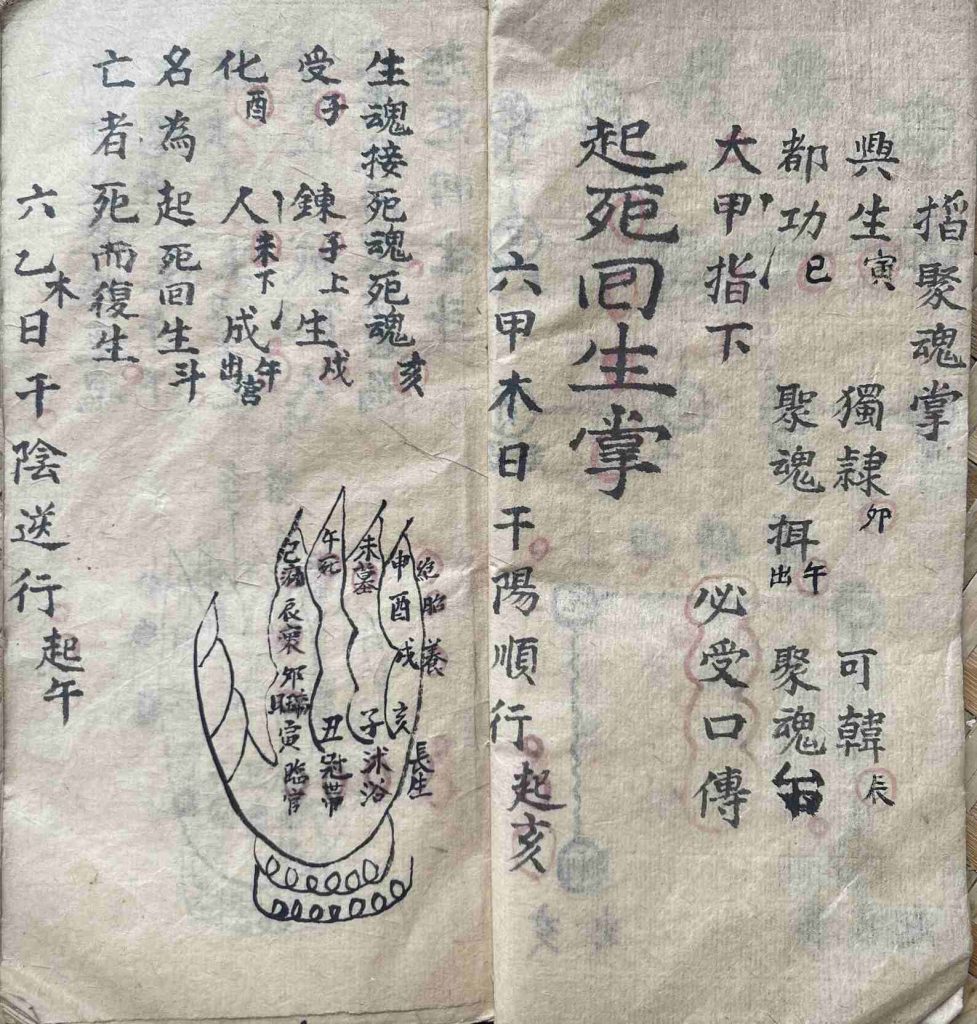 搯聚魂掌
興生寅 獨隷卯 可韓辰
都功巳 聚魂挕出午 聚魂台
大甲指下 必受口傳
起死囘生掌
六甲木日干陽順行起亥
生魂接死魂死魂亥
受子 鍊子上 生戌
化酉 人未下 成午出宮
名為起死回生斗
亡者死而復生
六乙木日干陰逆行起午
絕胎養
申酉戌
亥長生
未墓
子沐浴
午死
丑冠帶
辰衰
卯
寅臨官